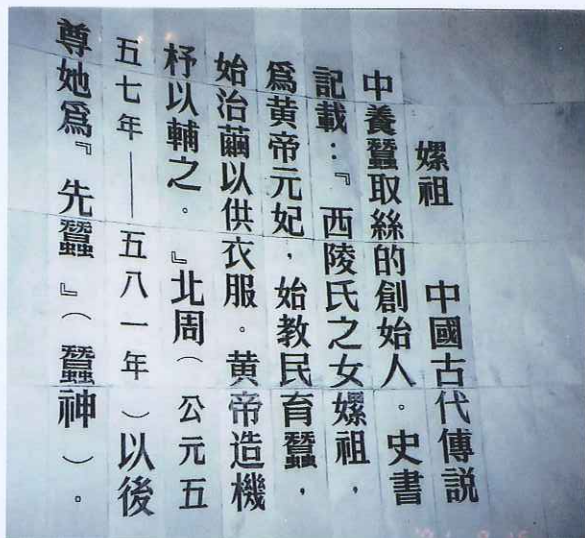 嫘祖　中國古代傳説
中養蠶取絲的創始人。史書
記載：『西陵氏之女嫘祖，
爲黄帝元妃，始教民育蠶，
始治繭以供衣服。黄帝造機
杼以輔之。』北周（公元五
五七年——五八一年）以後
尊她爲『先蠶』（蠶神）。